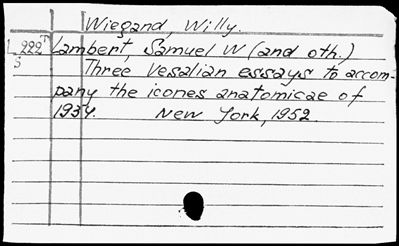 Wiegand, Willy.
L 222 T Lambert, Samuel W (and oth.)
S Three Vesalian essays to accom-
pany the icones anatomicae of
1934. New York, 1952